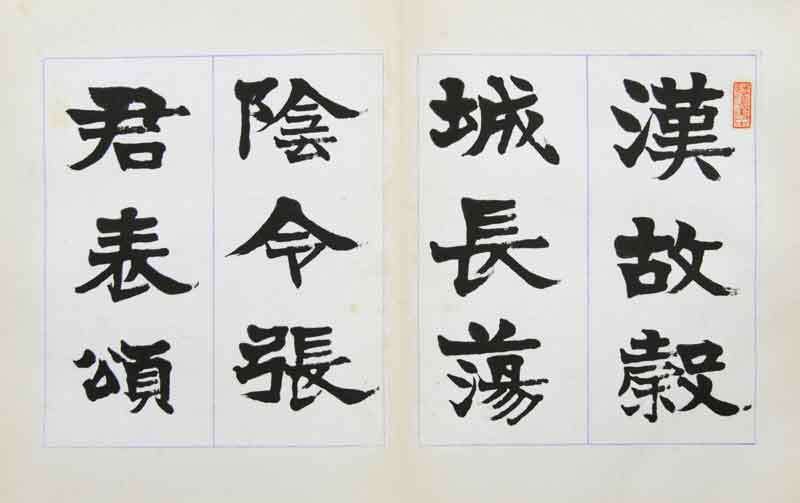 漢故穀
城長蕩
陰令張
君表頌